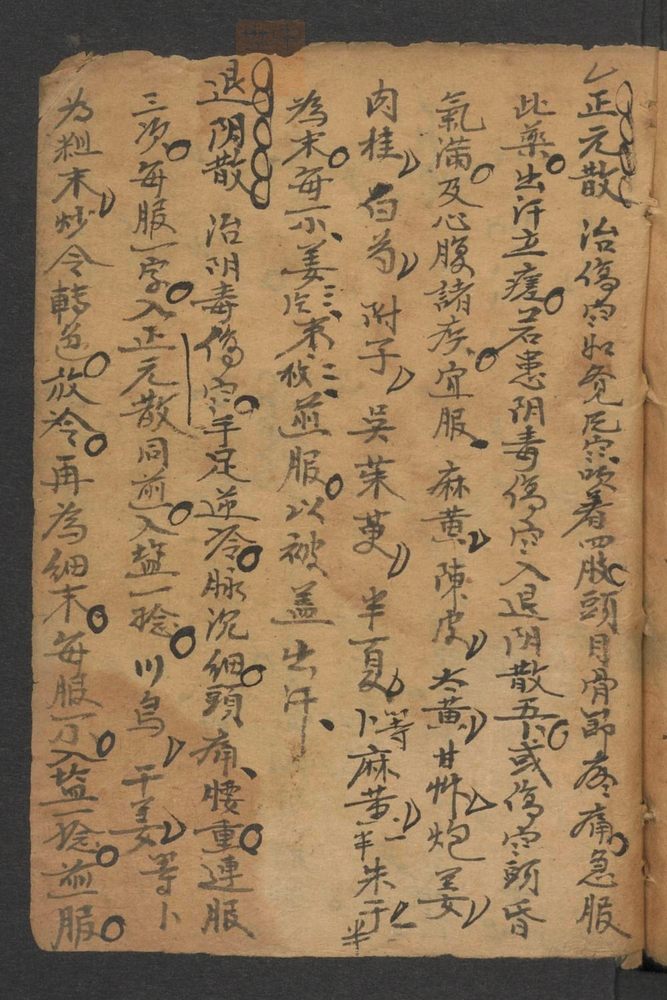 正元散 治傷寒如覚尽寒吹着四肢頭目骨節疼痛急服
此藥出汗立瘥若患阴毒傷寒入退阴散五卜或傷寒頭昏
氣满及心腹諸疾宜服 麻黄 陳皮 大黄 甘艸 炮姜
肉桂 白芍 附子 吳茱萸 半夏 卜等 麻黄一半 朱于半
為末每一小姜三片枣二枚前服以被盖出汗
退阴散 治阴毒傷寒手足逆冷脉沉細頭痛腰重連服
三次每服一字入正元散同前入盐一捻 川烏 干姜 等卜
为粗末炒令轉色放冷再為細末每服一小入盐一捻前服